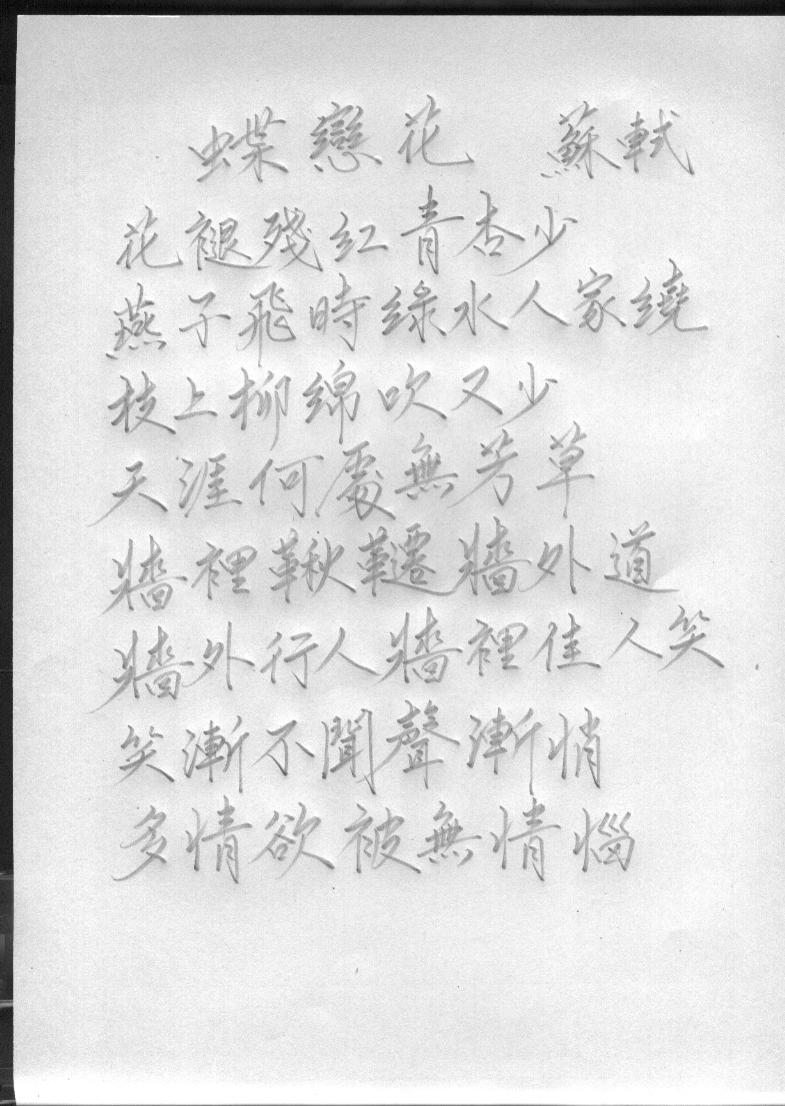 蝶戀花 蘇軾
花褪殘紅青杏少
燕子飛時綠水人家繞
枝上柳綿吹又少
天涯何處無芳草
牆裡鞦韆牆外道
牆外行人牆裡佳人笑
笑漸不聞聲漸悄
多情欲被無情惱